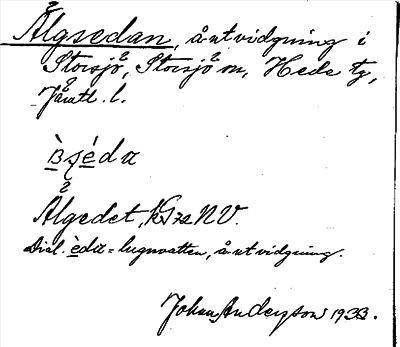 Ålgsedan, å-utvidgning i
Storsjö, Storsjö sn, Hede tg,
Jämtl. l.
Ålgedet, NV.
Dial. èda = lugnvatten, å-utvidgning.
Johan Anderzson 1933.